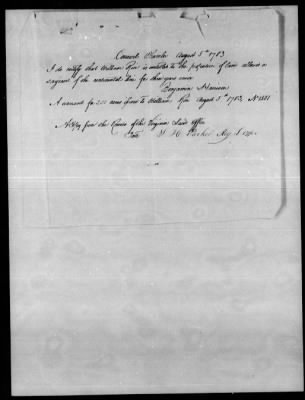 Council Chamber August 5th 1783
I do certify that William Rin is entitled to the proportion of land allowed a
sergeant of the continental line for three years service
Benjamin Harrison
A warrant for 200 acres issued to William Rin August 5th 1783, No 1381
A Copy from the Records of the Virginia Land Office
Teste